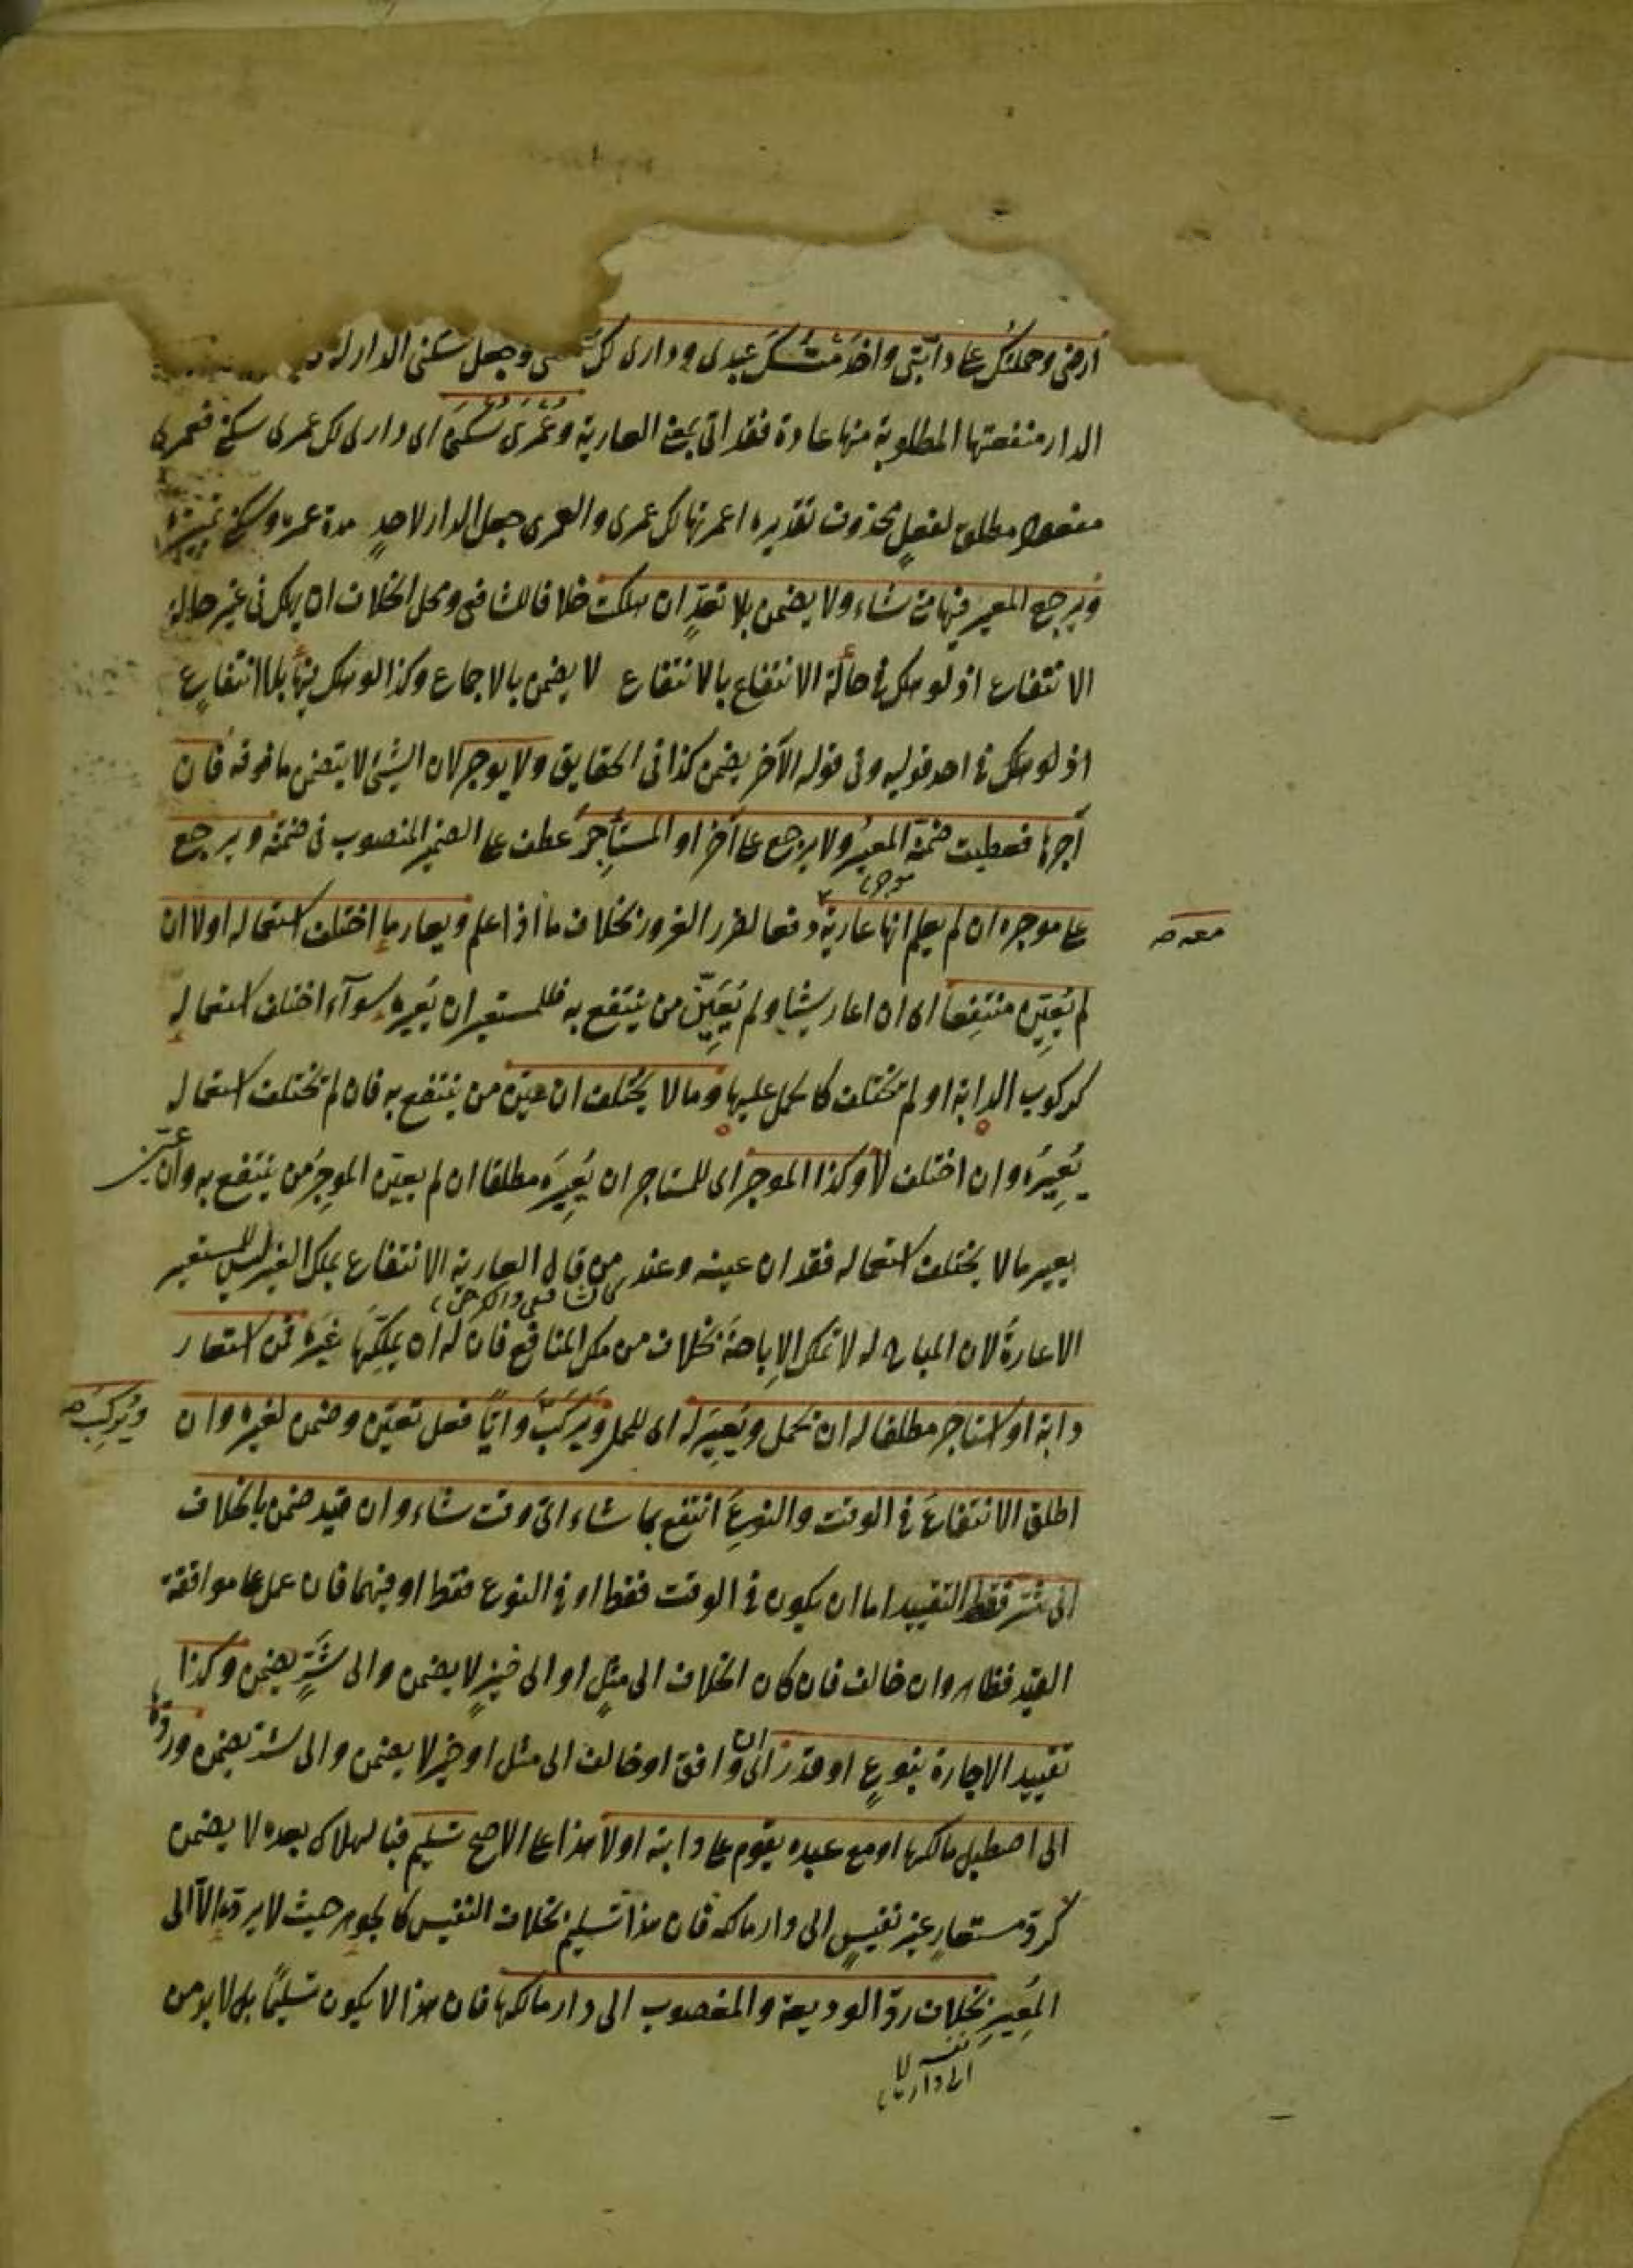 ارضى وحملتك على دابتى واخدمتك عبدى ودارى لك سكنى وجعل سكنى الدار له
الدار منفعتها المطلوبة منها عادة فقد اتى بمعنى العارية وعُمْرَى سُكْنَى اى دارى لك عمرى سكنى فعمرى
مفعول مطلق لفعلٍ محذوف تقديره اعمرتها لك عمرى والعمرى جعل الدار لاحدٍ مدة عمره وسكنى تمييزه
ويرجع المعير فيها متى شاء ولا يضمن بلا تعدٍّ ان هلكت خلافا للشافعى ومحل الخلاف ان يهلك فى غير حالة
الانتفاع اذ لو هلك فى حالة الانتفاع بالانتفاع لا يضمن بالاجماع وكذا لو هلك فيها بلا انتفاعٍ
اذ لو هلك فى احد قوليه وفى قوله الآخر يضمن كذا فى الحقايق ولا يوجر لان الشيئ لا يتضمن ما فوقه فان
آجرها فعطبت ضمنه المعير ولا يرجع على آخر او المستأجرَ عطف على الضمير المنصوب فى ضمنه ويرجع
على موجره ان لم يعلم انها عارية دفعا لضرر الغرور بخلاف ما اذا علم ويعار ما اختلف استعماله اولا ان
معه صح
لم يُعَيِّن منتفِعا اى ان اعار شيئا ولم يُعَيِّن من ينتفع به فللمستعير ان يُعيره سوآء اختلف استعماله
كركوب الدابة او لم يختلف كالحمل عليها وما لا يختلف ان عيّن من ينتفع به فان لم يختلف استعماله
يُعِيرُه وان اختلف لا وكذا الموجر اى للمستاجر ان يُعِيرَه مطلقا ان لم يعيّن الموجِرُ من ينتفع به وان عيّن
يعير ما لا يختلف استعماله فقد ان عينه وعند من قال العارية الانتفاع بملك الغير ليس للمستعير
كالشافعى والكرخى
الاعارةُ لان المباح له لا يملك الاباحةَ بخلاف من ملك المنافع فان له ان يملِّكها غيرَه فمن استعار
دابة او استاجر مطلقا له ان يحمل ويُعِيرَ له اى للحمل ويَرْكَبَ وايًّا فعل تعيّن وضمن لغيره وان
ويُركِبَ صح
اطلق الانتفاعَ فى الوقت والنوعِ انتفع بما شاء اىّ وقت شاء وان قيد ضمن بالخلاف
الى شرٍّ فقط التقييد اما ان يكون فى الوقت فقط او فى النوع فقط او فيهما فان عمل على موافقة
القيد فظاهر وان خالف فان كان الخلاف الى مثلٍ او الى خيرٍ لا يضمن والى شَرٍّ يضمن وكذا
تقييد الاجارة بنوعٍ او قدرٍ اى ان وافق او خالف الى مثل او خير لا يضمن والى شر يضمن وردّها
الى اصطبل مالكها او مع عبده يقوم على دابته اولا هذا على الاصح تسليم فبالهلاك بعده لا يضمن
كردّ مستعارٍ غير نفيسٍ الى دار مالكه فان هذا تسليم بخلاف النفيس كالجوهر حيث لا يردّ الّا الى
المُعِيرِ بخلاف ردّ الوديعة والمغصوب الى دار مالكها فان هذا لا يكون تسليمًا بل لا بد من